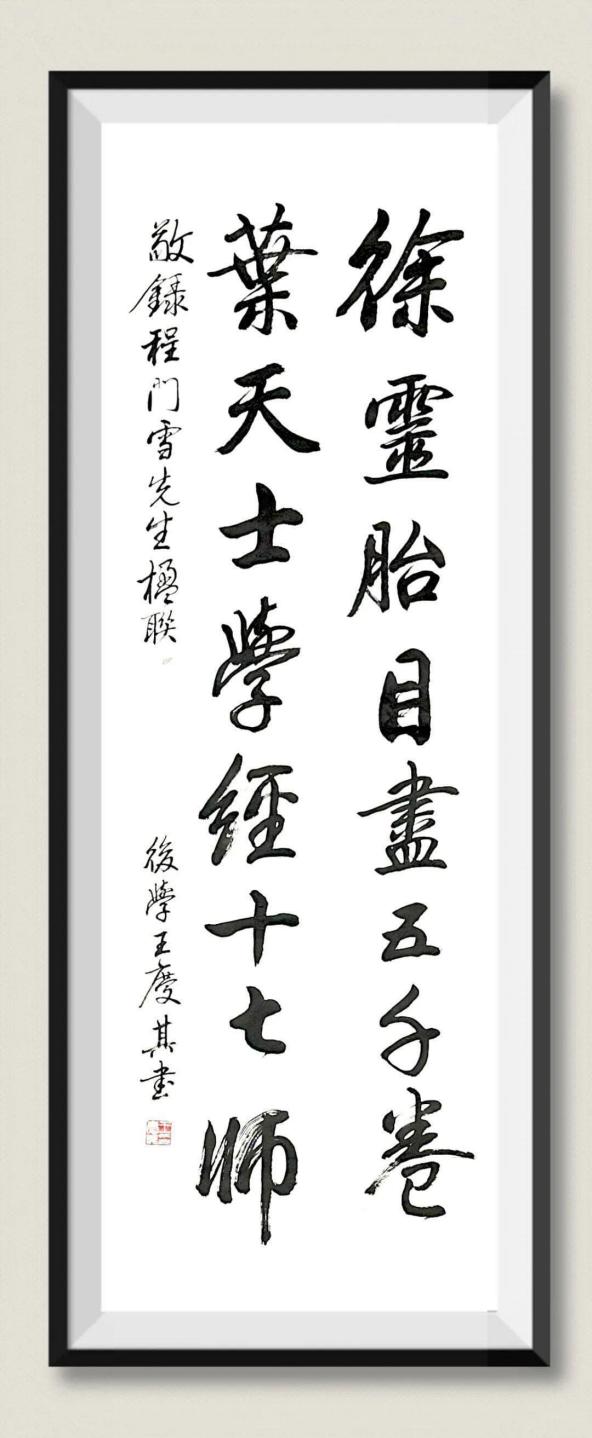 徐靈胎目盡五千卷
葉天士學經十七師
敬録程门雪先生楹聯
後學王慶其書